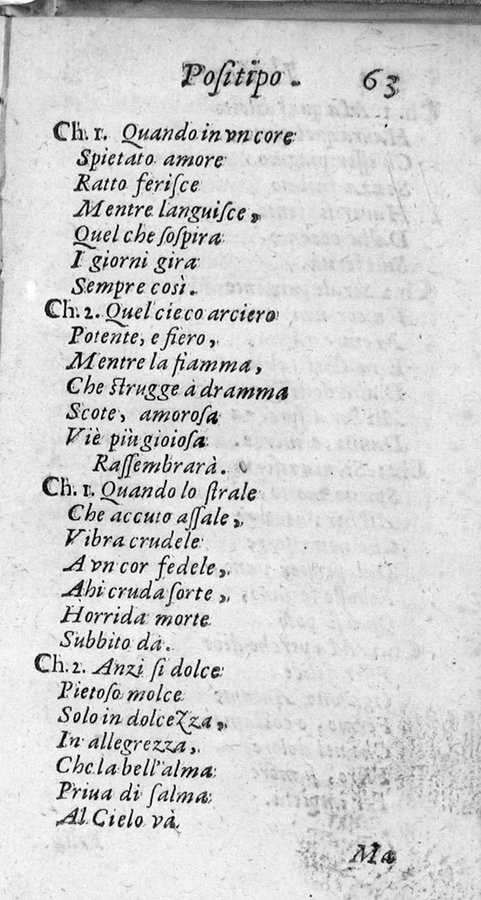 Positipo. 63
Ch. 1. Quando in vn core
Spietato amore
Ratto feriſce
Mentre languiſce,
Quel che ſoſpira
I giorni gira
Sempre così.
Ch. 2. Quel cieco arciero
Potente, e fiero,
Mentre la fiamma,
Che ſtrugge à dramma
Scote, amoroſa
Vie più gioioſa
Raſſembrarà.
Ch. 1. Quando lo ſtrale
Che accuto aſſale,
Vibra crudele
A vn cor fedele,
Ahi cruda ſorte,
Horrida morte
Subbito dà.
Ch. 2. Anzi ſi dolce
Pietoſo molce
Solo in dolcezza,
In allegrezza,
Che la bell'alma
Priua di ſalma
Al Cielo và.
Ma